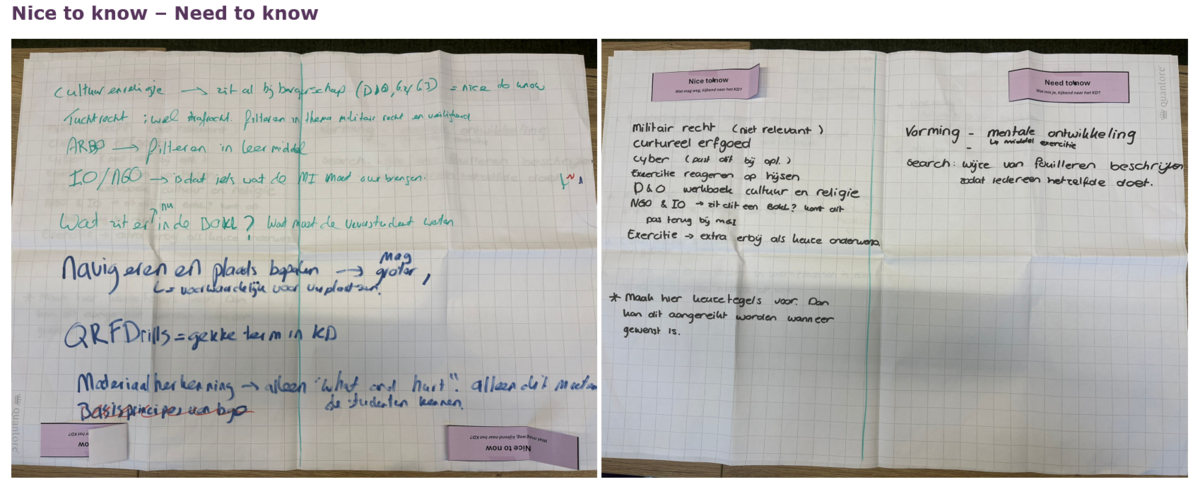 Nice to know – Need to know
Cultuur en religie → zit al bij burgerschap (D&O, G2/G3) = nice to know
Tuchtrecht ; wel strafrecht. filteren in thema militair recht en veiligheid
ARBO → filteren in leermiddel
IO/NGO → is dat iets wat de MI moet overbrengen.
nu
Wat zit er in de BOKL? Wat moet de vevastudent weten
Navigeren en plaats bepalen → mag groter,
↳ voorwaardelijk voor verplaatsen.
QRF Drills = gekke term in KD
Materiaalherkenning → alleen "what can hurt". alleen dit moeten
de studenten kennen.
Basisprincipes van
Nice to now
quantore
Nice to now
Wat mag weg, kijkend naar het KD?
Militair recht (niet relevant)
curtureel erfgoed
cyber (past dit bij opl.)
Exercitie reageren op hijsen
D&O werkboek cultuur en religie
NGO & IO → zit dit een BOKL? komt dit
pas terug bij
Exercitie → extra erbij als keuze onderwerp
* Maak hier keuzetegels voor. Dan
kan dit aangereikt worden wanneer
gewenst is.
Need to now
quantore
Vorming - mentale ontwikkeling
↳ middel exercitie
Search: wijze van fouilleren beschrijven
zodat iedereen hetzelfde doet.